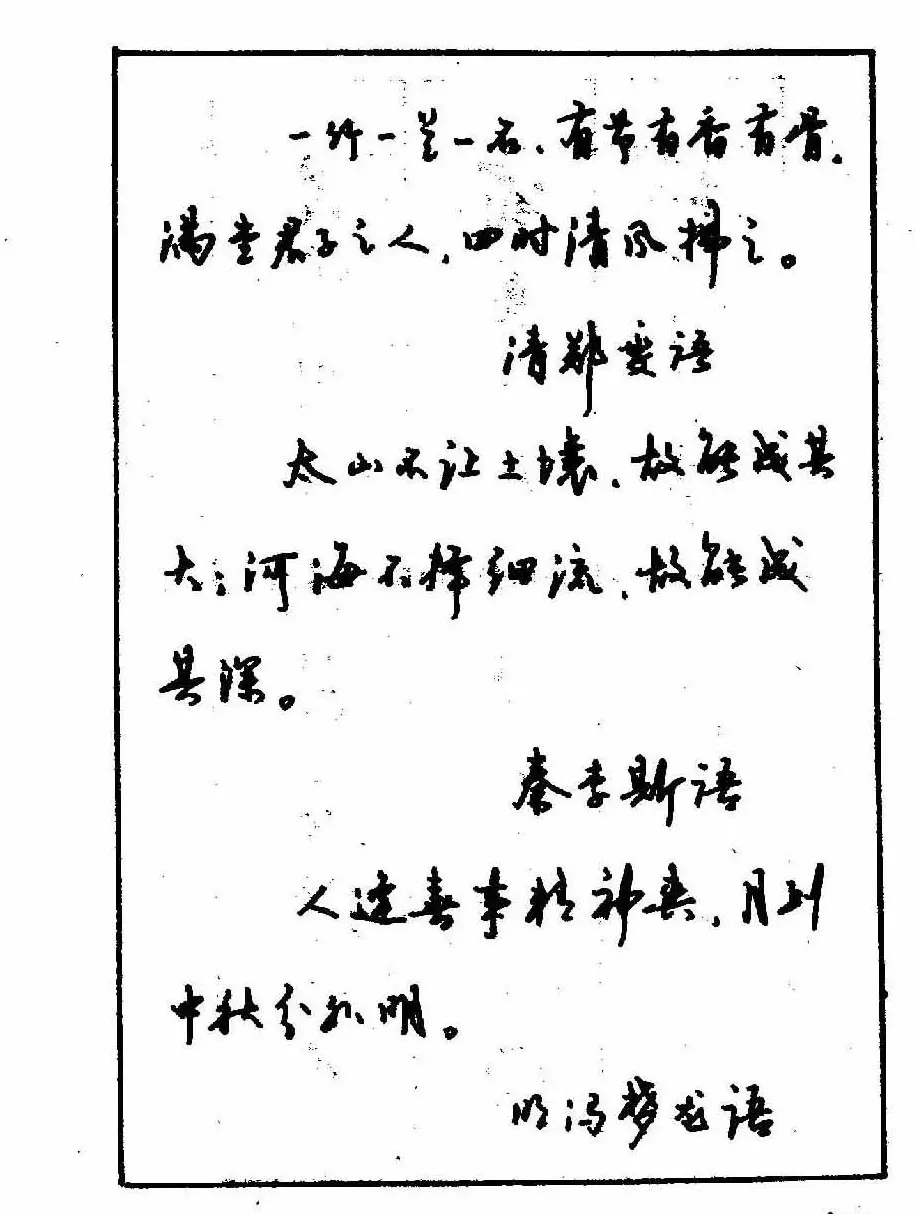 一竹一兰一石，有节有香有骨，
满堂君子之人，四时清风拂之。
清郑燮语
太山不让土壤，故能成其
大；河海不择细流，故能成
其深。
秦李斯语
人逢喜事精神爽，月到
中秋分外明。
明冯梦龙语